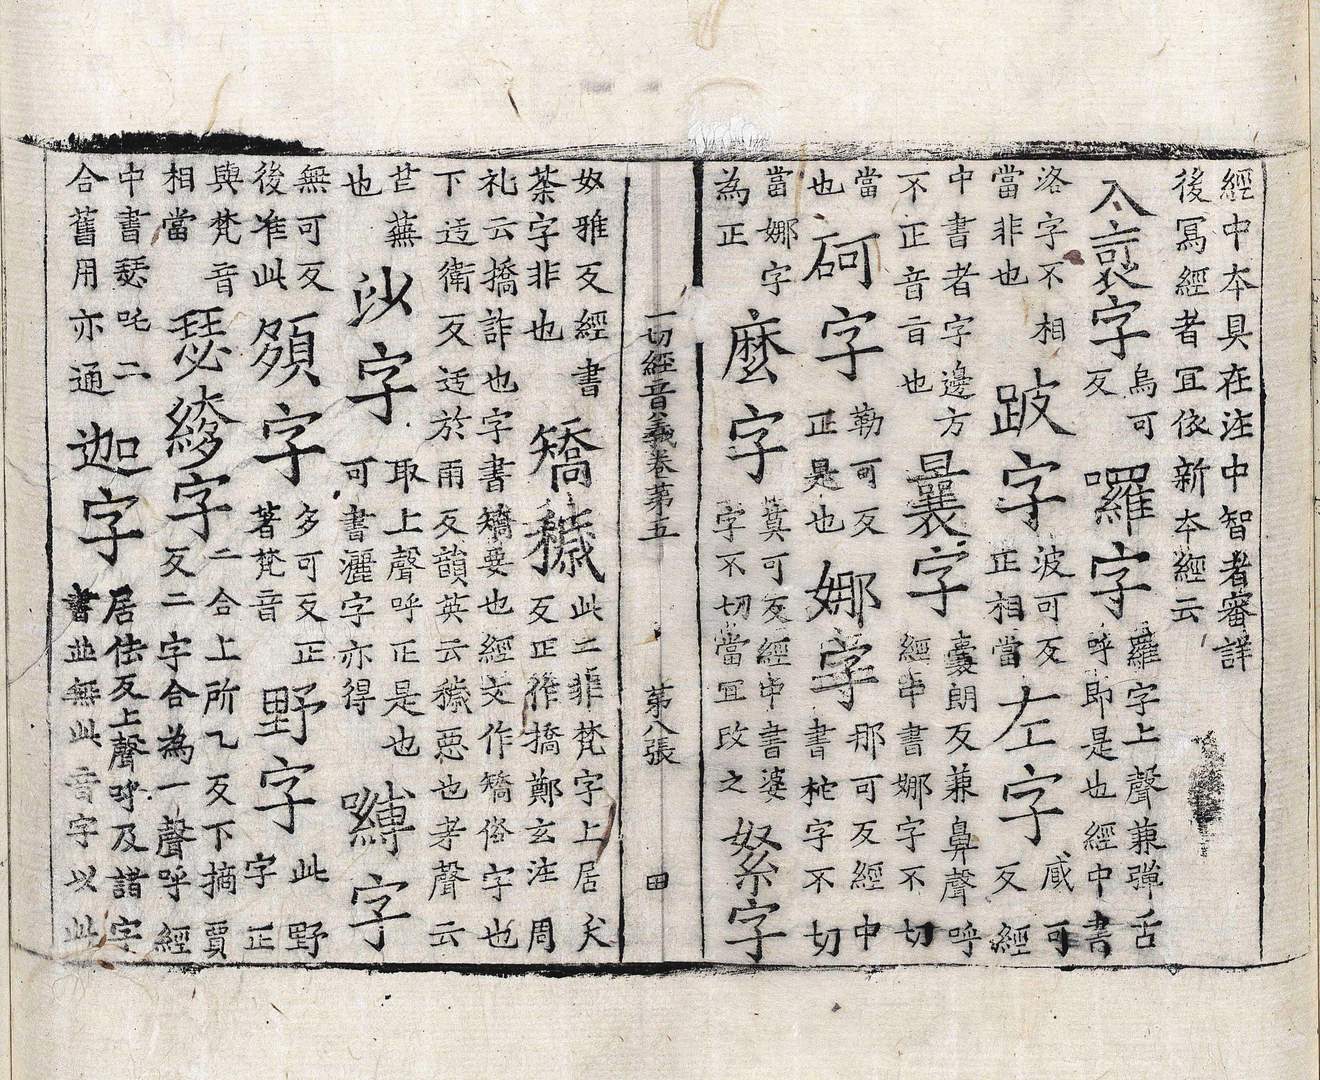 經中本具在注中智者審詳
後寫經者冝依新本經云
入 字烏可反囉字羅字上聲兼彈舌呼即是也經中書
洛字不相當非也跛字波可反正相當左字臧可反經
中書者字邊方不正音旨也曩字囊朗反兼鼻聲呼經中書娜字不切
當也砢字勒可反正是也娜字那可反經中書柁字不切
當娜字為正麽字莫可反經中書婆字不切當冝改之 字
一切經音義卷第五　第八張　田
奴雅反經書荼字非也矯穢此二非梵字上居夭反正作撟鄭玄注周
礼云撟詐也字書矯妄也經文作矯俗字也下迃衛反迃於雨反韻英云穢惡也孝聲云
荒蕪也 字取上聲呼正是也可書灑字亦得嚩字
無可反後准此 字多可反正著梵音野字此野字正
與梵音相當瑟 字二合上所乙反下摘賈反二字合為一聲呼經
中書瑟吒二合舊用亦通迦字居佉反上聲呼及諸字書並無此音字以此